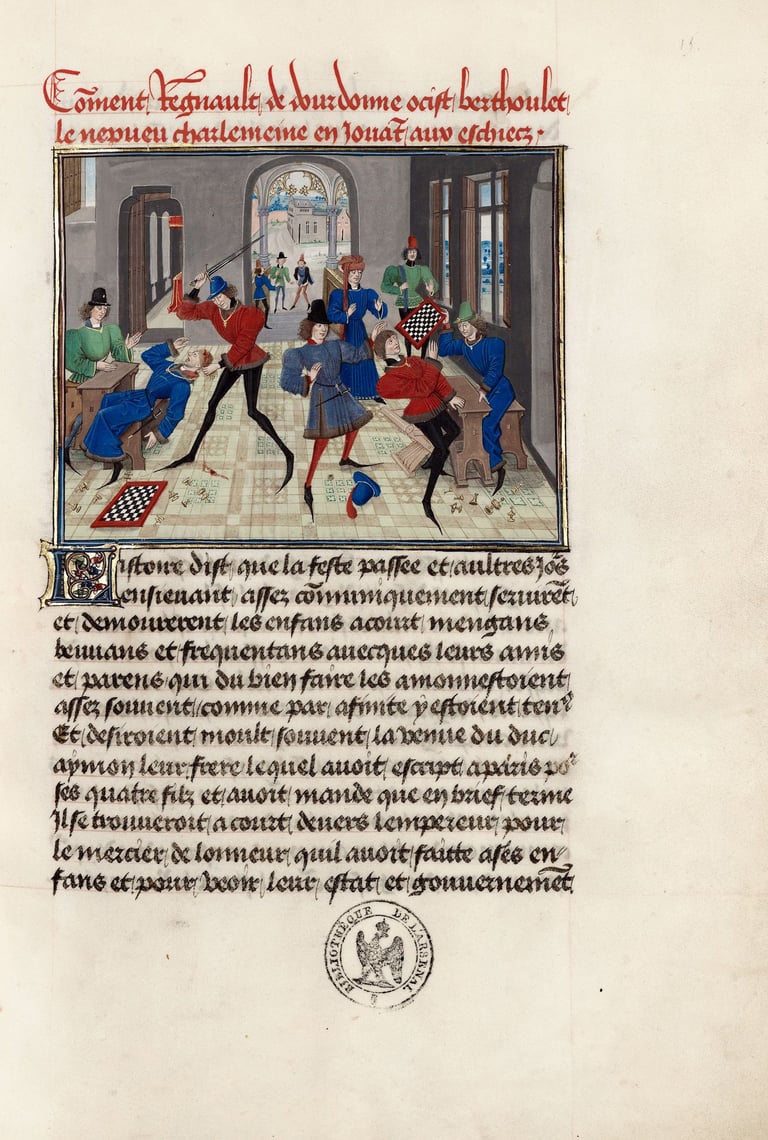 Cōment Regnault de dourdonne ocist berthoulet
le nepueu charlemeine en Jouāt aux eschecz.
Histoire dist que la feste passee et aultres Jos
ensieuant assez cōmuniquement seruirēt
et demourerent les enfans a court mengans
beuuans et frequentans auecques leurs amis
et parens qui du bien faire les amonnestoient
assez souuent comme par afinite y estoient ten9
Et desiroient moult souuent la venue du duc
aymon leur frere lequel auoit escript a paris por
ses quatre filz et auoit mande que en brief terme
Il se trouueroit a court deuers lempereur pour
le mercier de lonneur quil auoit faitte a ses en
fans et pour veoir leur estat et gouuernemēt
BIBLIOTHÈQUE DE L'ARSENAL